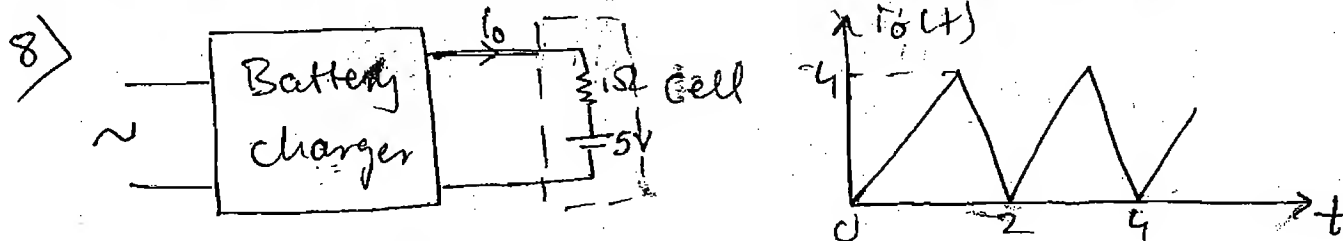 8)
Battery
charger
~
i₀
1Ω
5V
Cell
i₀(t)
4
0
2
4
t